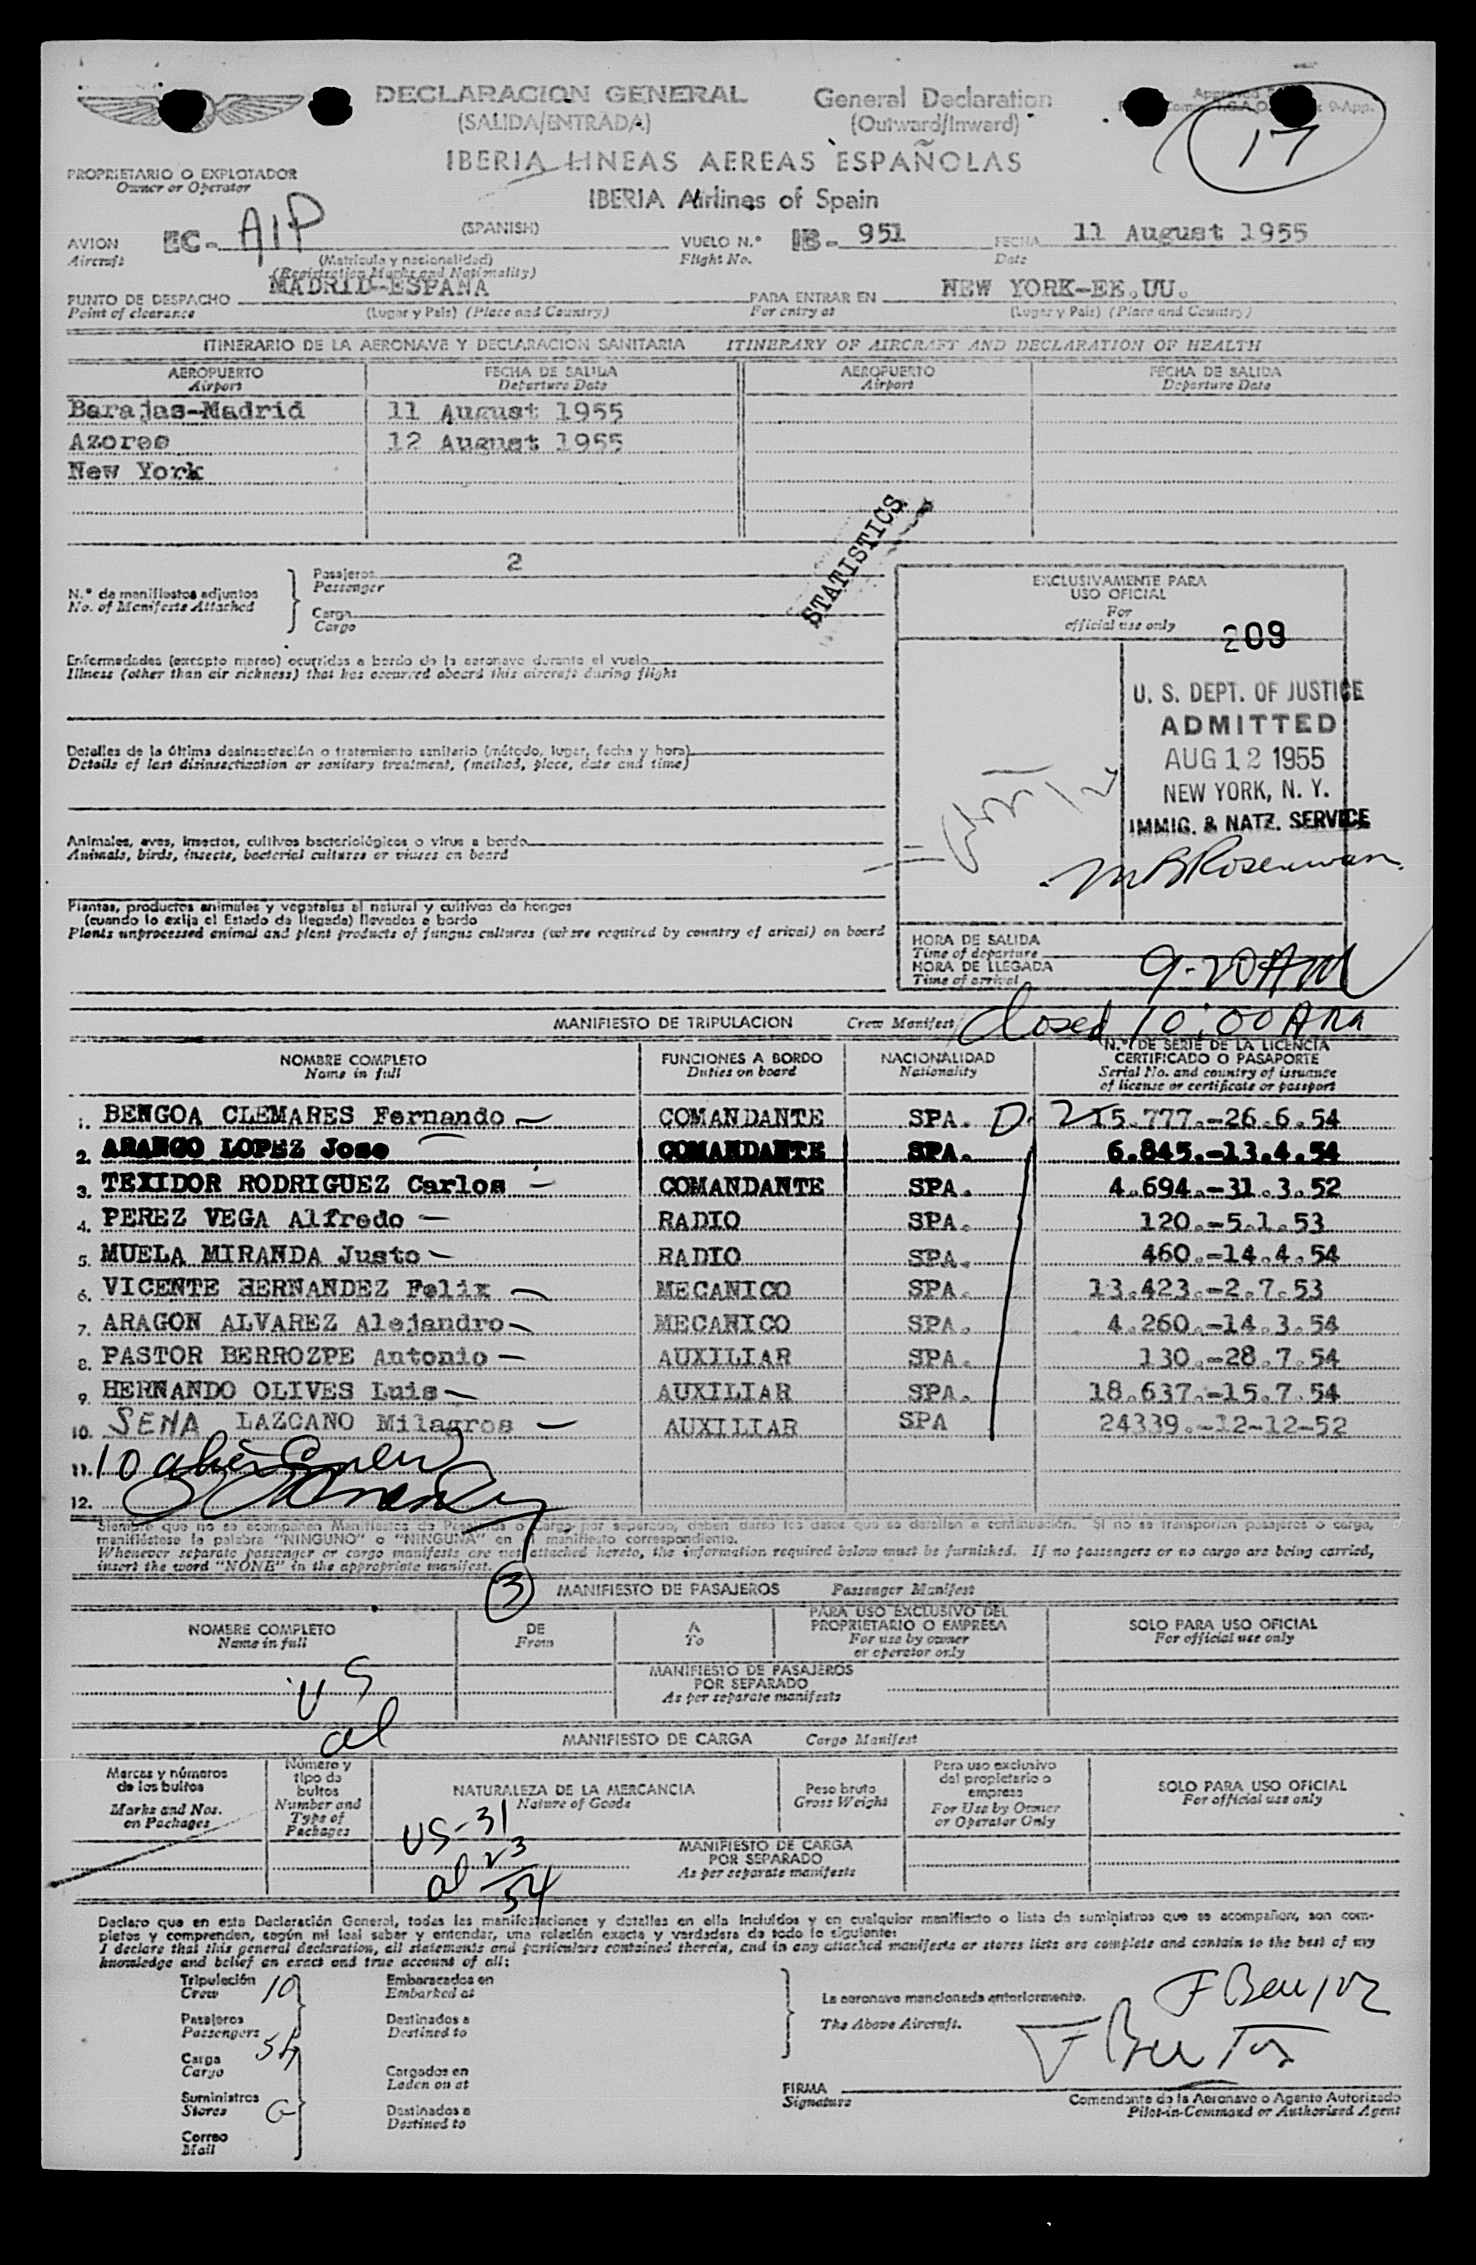 DECLARACION GENERAL General Declaration
(SALIDA/ENTRADA) (Outward/Inward)
17
IBERIA LINEAS AEREAS ESPAÑOLAS
IBERIA Airlines of Spain
PROPIETARIO O EXPLOTADOR
Owner or Operator
AVION EC- AIP (SPANISH) VUELO N.º IB- 951 FECHA 11 August 1955
Aircraft (Matricula y nacionalidad) Flight No. Date
(Registration Marks and Nationality)
PUNTO DE DESPACHO MADRID-ESPAÑA PARA ENTRAR EN NEW YORK-EE.UU.
Point of clearance (Lugar y Pais) (Place and Country) For entry at (Lugar y Pais) (Place and Country)
ITINERARIO DE LA AERONAVE Y DECLARACION SANITARIA ITINERARY OF AIRCRAFT AND DECLARATION OF HEALTH
AEROPUERTO FECHA DE SALIDA AEROPUERTO FECHA DE SALIDA
Airport Departure Date Airport Departure Date
Barajas-Madrid 11 August 1955
Azores 12 August 1955
New York
STATISTICS
2
N.º de manifiestos adjuntos Pasajeros
No. of Manifests Attached Passenger
Carga
Cargo
EXCLUSIVAMENTE PARA
USO OFICIAL
For
official use only
209
Enfermedades (excepto mareo) ocurridas a bordo de la aeronave durante el vuelo
Illness (other than air sickness) that has occurred aboard this aircraft during flight
U. S. DEPT. OF JUSTICE
ADMITTED
AUG 12 1955
NEW YORK, N. Y.
IMMIG. & NATZ. SERVICE
Detalles de la última desinsectación o tratamiento sanitario (método, lugar, fecha y hora)
Details of last disinsectization or sanitary treatment, (method, place, date and time)
Animales, aves, insectos, cultivos bacteriológicos o virus a bordo
Animals, birds, insects, bacterial cultures or viuses on board
Plantas, productos animales y vegetales al natural y cultivos de hongos
(cuando lo exija el Estado de llegada) llevados a bordo
Plants unprocessed animal and plant products of fungus cultures (where required by country of arival) on board
HORA DE SALIDA
Time of departure
HORA DE LLEGADA 9-20 AM
Time of arrival
Closed 10:00 AM
MANIFIESTO DE TRIPULACION Crew Manifest
NOMBRE COMPLETO FUNCIONES A BORDO NACIONALIDAD N.º DE SERIE DE LA LICENCIA
Name in full Duties on board Nationality CERTIFICADO O PASAPORTE
Serial No. and country of issuance
of license or certificate or passport
1. BENGOA CLEMARES Fernando COMANDANTE SPA. D-2 15.777.-26.6.54
2. ARANGO LOPEZ Jose COMANDANTE SPA. 6.845.-13.4.54
3. TEXIDOR RODRIGUEZ Carlos COMANDANTE SPA. 4.694.-31.3.52
4. PEREZ VEGA Alfredo RADIO SPA. 120.-5.1.53
5. MUELA MIRANDA Justo RADIO SPA. 460.-14.4.54
6. VICENTE HERNANDEZ Felix MECANICO SPA. 13.423.-2.7.53
7. ARAGON ALVAREZ Alejandro MECANICO SPA. 4.260.-14.3.54
8. PASTOR BERROZPE Antonio AUXILIAR SPA. 130.-28.7.54
9. HERNANDO OLIVES Luis AUXILIAR SPA. 18.637.-15.7.54
10. SENA LAZCANO Milagros AUXILIAR SPA 24339.-12-12-52
11. 10 alien Crew
12.
Siempre que no se acompañen Manifiestos de Pasajeros o Carga por separado, deben darse los datos que se detallan a continuación. Si no se transportan pasajeros o carga,
manifiéstese la palabra "NINGUNO" o "NINGUNA" en el manifiesto correspondiente.
Whenever separate passenger or cargo manifests are not attached hereto, the information required below must be furnished. If no passengers or no cargo are being carried,
insert the word "NONE" in the appropriate manifest.
3
MANIFIESTO DE PASAJEROS Passenger Manifest
NOMBRE COMPLETO DE A PARA USO EXCLUSIVO DEL SOLO PARA USO OFICIAL
Name in full From To PROPRIETARIO O EMPRESA For official use only
For use by owner
or operator only
MANIFIESTO DE PASAJEROS
POR SEPARADO
As per separate manifests
US
al
MANIFIESTO DE CARGA Cargo Manifest
Marcas y números Número y NATURALEZA DE LA MERCANCIA Peso bruto Para uso exclusivo SOLO PARA USO OFICIAL
de los bultos tipo de Nature of Goods Gross Weight del propietario o For official use only
Marks and Nos. bultos empresa
on Packages Number and For Use by Owner
Type of or Operator Only
Packages
US-31
al 23
54
MANIFIESTO DE CARGA
POR SEPARADO
As per separate manifests
Declaro que en esta Declaración General, todas las manifestaciones y detalles en ella incluídos y en cualquier manifiesto o lista de suministros que se acompañen, son com-
pletos y comprenden, según mi leal saber y entender, una relación exacta y verdadera de todo lo siguiente:
I declare that this general declaration, all statements and particulars contained therein, and in any attached manifests or stores lists are complete and contain to the best of my
knowledge and belief an exact and true account of all:
Tripulación 10 Embaracados en
Crew Embarked at
Pasajeros 54 Destinados a
Passengers Destined to
La aeronave mencionada anteriormente.
The Above Aircraft.
Carga Cargados en
Cargo Laden on at
Suministros Destinados a
Stores Destined to
Correo
Mail
FIRMA
Signature
Comandante de la Aeronave o Agente Autorizado
Pilot-in-Command or Authorised Agent